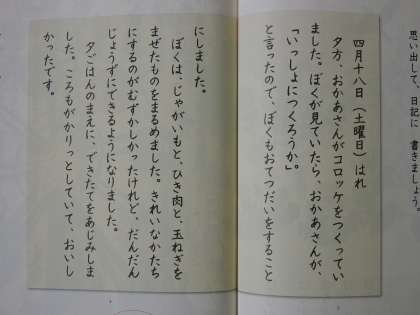 思い出して、日記に 書きましょう。
四月十八日(土曜日)はれ
夕方、おかあさんがコロッケをつくってい
ました。ぼくが見ていたら、おかあさんが、
「いっしょにつくろうか。」
と言ったので、ぼくもおてつだいをすること
にしました。
ぼくは、じゃがいもと、ひき肉と、玉ねぎを
まぜたものをまるめました。きれいなかたち
にするのがむずかしかったけれど、だんだん
じょうずにできるようになりました。
夕ごはんのまえに、できたてをあじみしま
した。ころもがかりっとしていて、おいし
かったです。